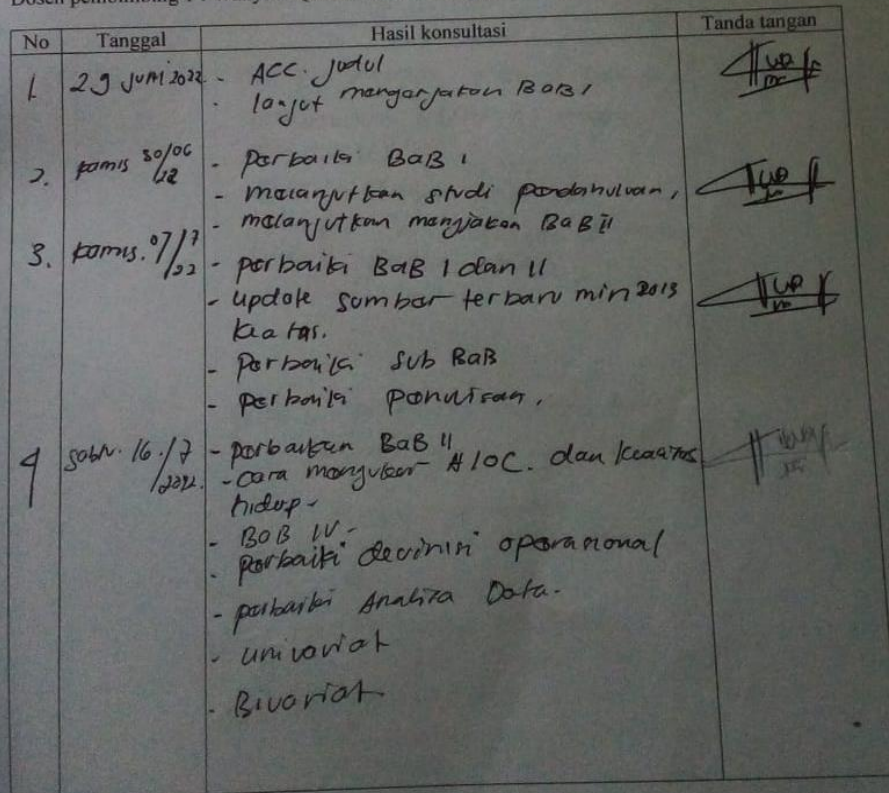 No Tanggal Hasil konsultasi Tanda tangan
1. 29 Juni 2022 - ACC. Judul
- lanjut mengerjakan BaB 1
2. Kamis 30/06/22 - Perbaiki BaB 1
- melanjutkan studi pendahuluan,
- melanjutkan mengerjakan BaB II
3. Kamis. 07/7/22 - perbaiki BaB I dan II
- update sumber terbaru min 2013
keatas.
- Perbaiki sub BaB
- perbaiki penulisan.
4 Sabtu. 16/7/2022. - perbaikan BaB II
- cara mengukur dan
hidup -
- BOB IV -
- perbaiki devinisi operasional
- perbaiki Analisa Data.
- univariat
- Bivariat